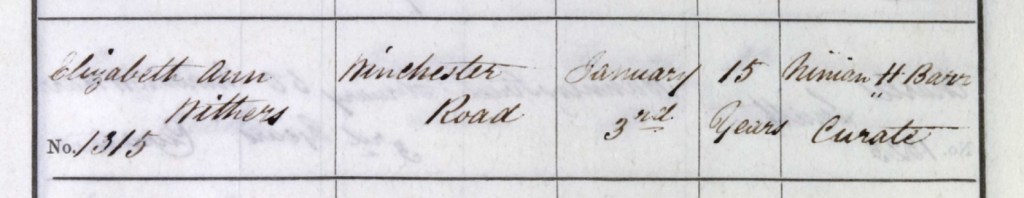 Elizabeth Ann
Withers
No. 1315
Winchester
Road
January
3rd
15
Years
Ninian H Barr
Curate